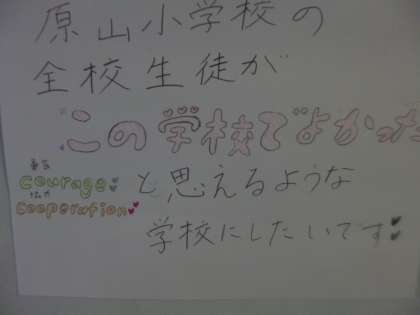 原山小学校の
全校生徒が
"この学校でよかった
勇気
courage
協力
Cooperation
と思えるような
学校にしたいです